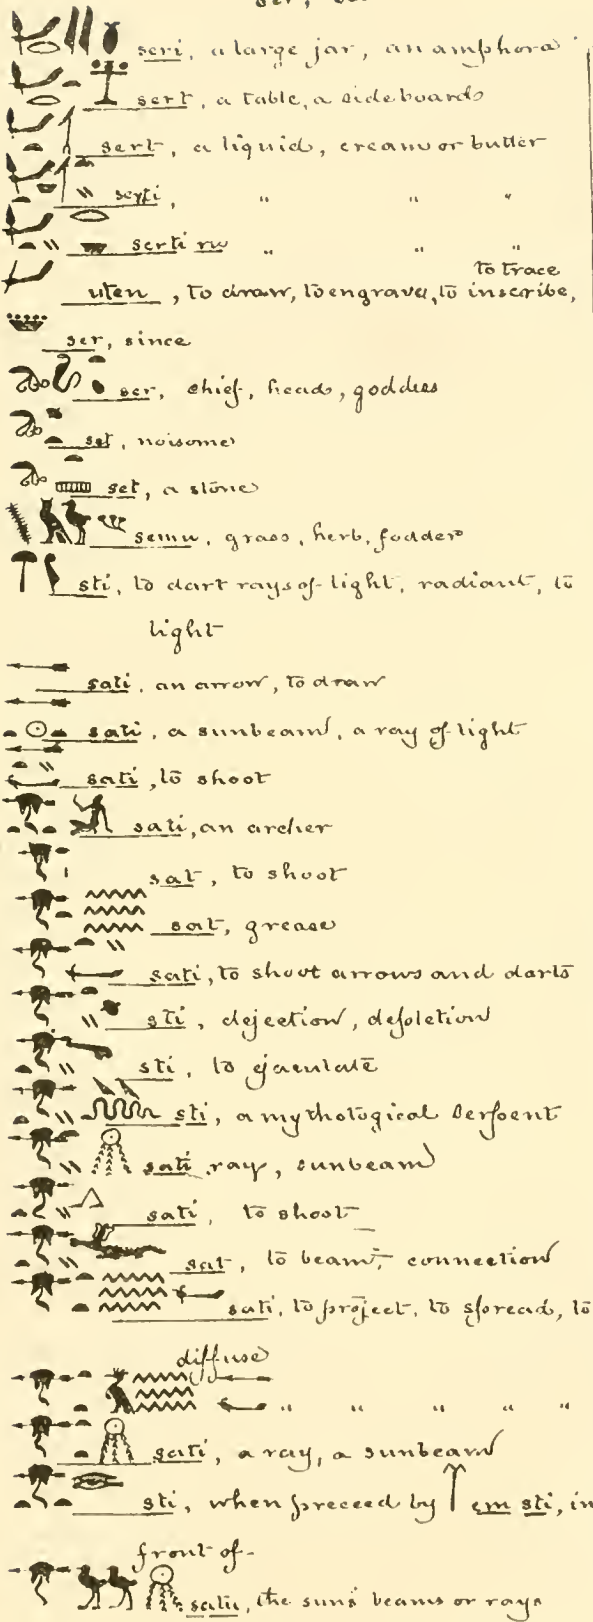 seri, a large jar, an amphora
sert, a table, a sideboards
sert, a liquid, cream or butter
serti, " " "
serti ru " " "
to trace
uten, to draw, to engrave, to inscribe,
ser, since
ser, chief, head, goddess
set, noisome
set, a stone
semu, grass, herb, fodder
sti, to dart rays of light, radiant, to
light
sati, an arrow, to draw
sati, a sunbeam, a ray of light
sati, to shoot
sati, an archer
sat, to shoot
sat, grease
sati, to shoot arrows and darts
sti, dejection, depletion
sti, to ejaculate
sti, a mythological serpent
sati ray, sunbeam
sati, to shoot
sat, to beam, connection
sati, to project, to spread, to
diffuse
" " " " "
sati, a ray, a sunbeam
sti, when preceed by em sti, in
front of
satu, the suns beams or rays